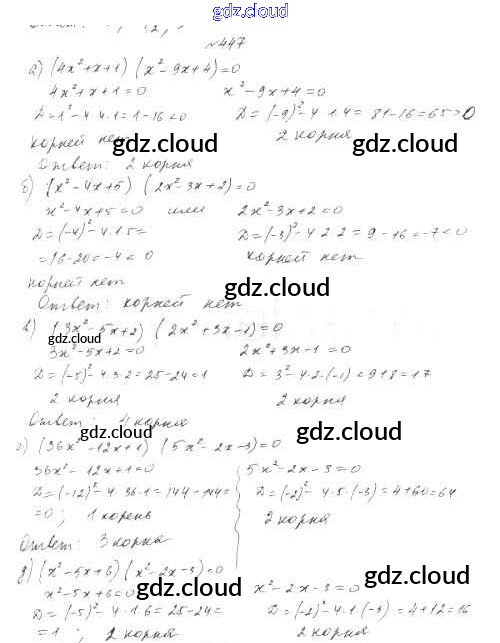 gdz.cloud
№447
а) (4x²+x+1) (x²-9x+4)=0
4x²+x+1=0 x²-9x+4=0
D=1²-4·4·1=1-16<0 D=(-9)²-4·1·4=81-16=65>0
корней нет 2 корня
gdz.cloud gdz.cloud
Ответ: 2 корня
б) (x²-4x+5) (2x²-3x+2)=0
x²-4x+5=0 или 2x²-3x+2=0
D=(-4)²-4·1·5= D=(-3)²-4·2·2=9-16=-7<0
=16-20=-4<0 корней нет
корней нет
gdz.cloud
Ответ: корней нет
в) (3x²-5x+2) (2x²+3x-1)=0
gdz.cloud
3x²-5x+2=0 2x²+3x-1=0
D=(-5)²-4·3·2=25-24=1 D=3²-4·2·(-1)=9+8=17
2 корня 2 корня
Ответ: 4 корня
gdz.cloud gdz.cloud
г) (36x²-12x+1) (5x²-2x-3)=0
36x²-12x+1=0 5x²-2x-3=0
D=(-12)²-4·36·1=144-144= D=(-2)²-4·5·(-3)=4+60=64
=0; 1 корень 2 корня
Ответ: 3 корня
д) (x²-5x+6) (x²-2x-3)=0
x²-5x+6=0 x²-2x-3=0
gdz.cloud gdz.cloud
D=(-5)²-4·1·6=25-24= D=(-2)²-4·1·(-3)=4+12=16
=1; 2 корня 2 корня